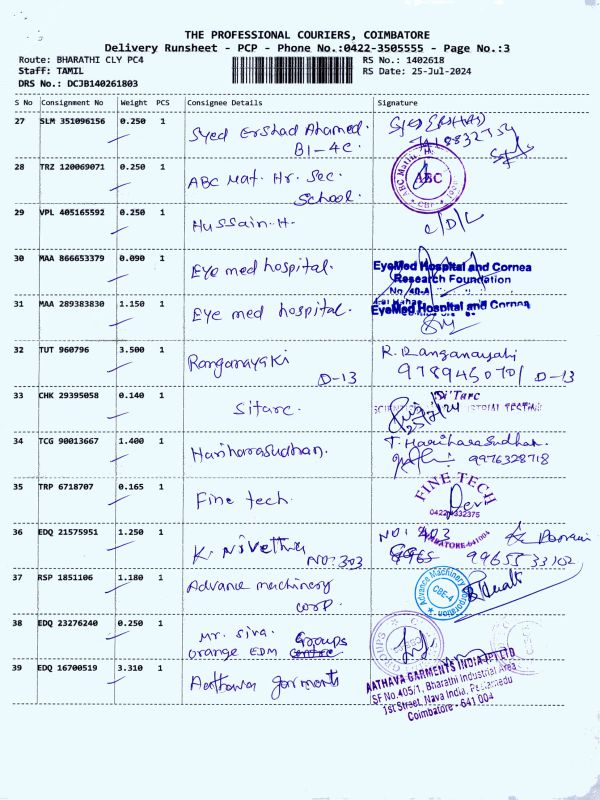 THE PROFESSIONAL COURIERS, COIMBATORE
Delivery Runsheet - PCP - Phone No.:0422-3505555 - Page No.:3
Route: BHARATHI CLY PC4 RS No.: 1402618
Staff: TAMIL RS Date: 25-Jul-2024
DRS No.: DCJB140261803
S No Consignment No Weight PCS Consignee Details Signature
27 SLM 351096156 0.250 1 Syed Ershad Ahamed.
B1-4C.
28 TRZ 120069071 0.250 1 ABC Mat. Hr. Sec. ABC
School.
29 VPL 405165592 0.250 1 Hussain.H. C/D/L
30 MAA 866653379 0.090 1 Eye med hospital. EyeMed Hospital and Cornea
Research Foundation
No.40-A
31 MAA 289383830 1.150 1 Eye med hospital. EyeMed Hospital and Cornea
32 TUT 960796 3.500 1 Ranganayaki R. Ranganayaki
D-13 9789450701 D-13
33 CHK 29395058 0.140 1 Sitarc. Si'Tarc
25/7/24
34 TCG 90013667 1.400 1 Hariharasudhan. T. Hariharasudhan.
9976328718
35 TRP 6718707 0.165 1 Fine tech. FINE TECH
36 EDQ 21575951 1.250 1 K. Nivetha NO: 403
NO:303 99655 33102
37 RSP 1851106 1.180 1 Advance machinery Advance Machinery Corporation
corp. CBE-4
38 EDQ 23276240 0.250 1 Mr. Siva. Groups
Orange EDM
39 EDQ 16700519 3.310 1 Aathava garments AATHAVA GARMENTS INDIA (P) LTD
SF No.405/1, Bharathi Industrial Area
1st Street, Nava India, Peelamedu
Coimbatore - 641 004